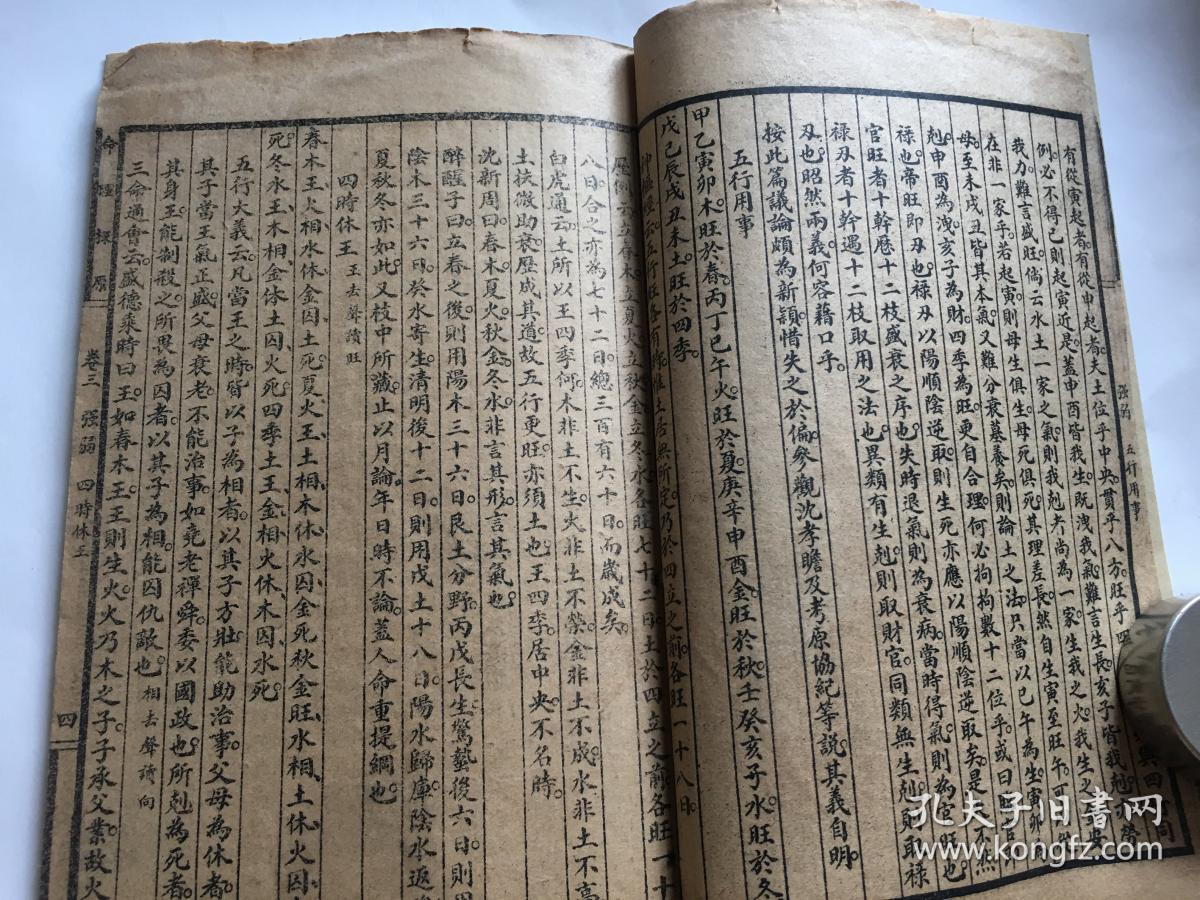 强弱 五行用事
有從寅起者有從申起者夫土位乎中央貫乎八方旺乎四
例必不得已則起寅近是蓋申酉皆我生既洩我氣難言生長亥子皆我剋
我力難言盛旺倘云水土一家之氣則我剋者尚為一家生我之火我生之
在非一家乎若起寅則母生俱生母死俱死其理差長然自生寅至旺午
母至未戌丑皆其本氣又難分衰墓養矣則論土之法只當以巳午為生寅卯
剋申酉為洩亥子為財四季為旺更自合理何必拘拘數十二位乎或曰
祿也帝旺即刃也祿刃以陽順陰逆取則生死亦應以陽順陰逆取矣是不然
官旺者十幹歷十二枝盛衰之序也失時退氣則為衰病當時得氣則為官旺也
祿刃者十幹遇十二枝取用之法也異類有生剋則取財官同類無生剋則取祿
刃也昭然兩義何容藉口乎
按此篇議論頗為新頴惜失之於偏參觀沈孝瞻及考原協紀等說其義自明
五行用事
甲乙寅卯木旺於春丙丁巳午火旺於夏庚辛申酉金旺於秋壬癸亥子水旺於冬
戊己辰戌丑未土旺於四季
神樞經云五行旺各有時惟土居無所定乃於四立之前各旺一十八日
歷例云立春木立夏火立秋金立冬水各旺七十二日土於四立之前各旺一十
八日合之亦為七十二日總三百有六十日而歲成矣
白虎通云土所以王四季何木非土不生火非土不榮金非土不成水非土不高
土扶微助衰歷成其道故五行更旺亦須土也王四季居中央不名時
沈新周曰春木夏火秋金冬水非言其形言其氣也
醉醒子曰立春之後則用陽木三十六日艮土分野丙戊長生驚蟄後六日則用
陰木三十六日癸水寄生清明後十二日則用戊土十八日陽水歸庫陰水返
夏秋冬亦如此又枝中所藏止以月論年日時不論蓋人命重提綱也
四時休王 王去聲讀旺
春木王火相水休金囚土死夏火王土相木休水囚金死秋金旺水相土休火囚
死冬水王木相金休土囚火死四季土王金相火休木囚水死
五行大義云凡當王之時皆以子為相者以其子方壯能助治事父母為休者
其子當王氣正盛父母衰老不能治事如堯老禪舜委以國政也所剋為死者
其身王能制殺之所畏為囚者以其子為相能囚仇敵也 相去聲讀向
三命通會云盛德乘時曰王如春木王王則生火火乃木之子子承父業故火
命理探原 卷三 强弱 四時休王 四
孔夫子旧書网
www.kongfz.com